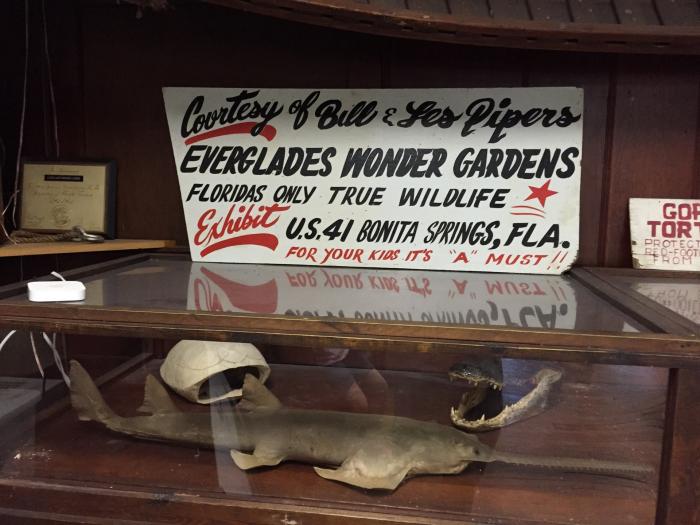 Courtesy of Bill & Les Pipers
EVERGLADES WONDER GARDENS
FLORIDAS ONLY TRUE WILDLIFE
Exhibit U.S. 41 BONITA SPRINGS, FLA.
FOR YOUR KIDS IT'S "A" MUST!!
GOP
TORT
PROTEC
FROM